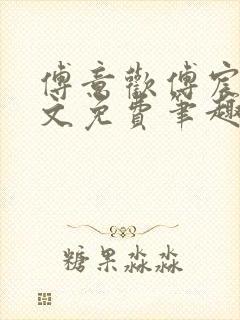 傅意歡傅宸
文免費筆趣
糖果淼淼